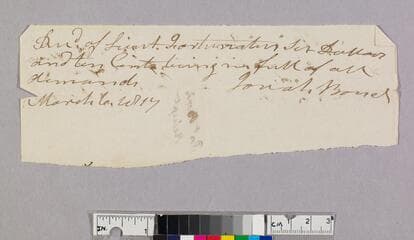 Rec'd of Scipio Fortunatus Six Dollars
and ten Cents being in full of all
demands Josiah
March 6. 1817
IN. 1
CM 1 2 3